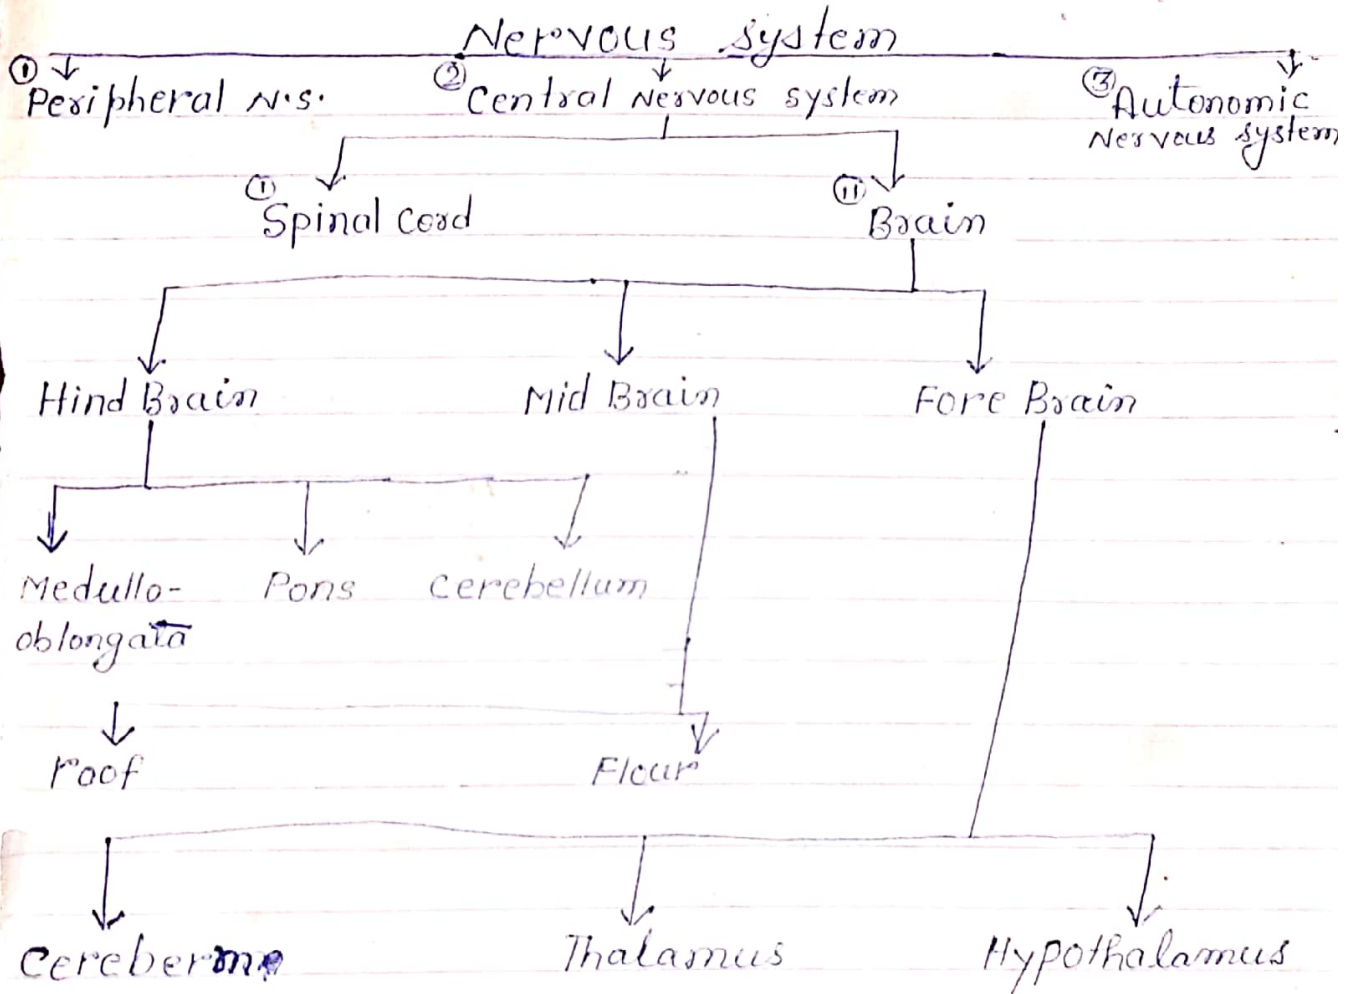 Nervous system
① Peripheral N.S.
② Central Nervous system
③ Autonomic
Nervous system
① Spinal Cord
⑪ Brain
Hind Brain
Mid Brain
Fore Brain
Medullo-
oblongata
Pons
Cerebellum
roof
Flour
Thalamus
Hypothalamus